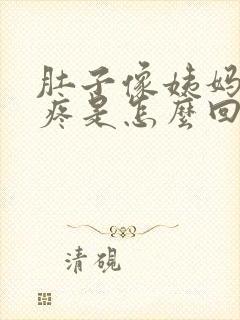 肚子像姨妈
疼是怎麼回
清硯